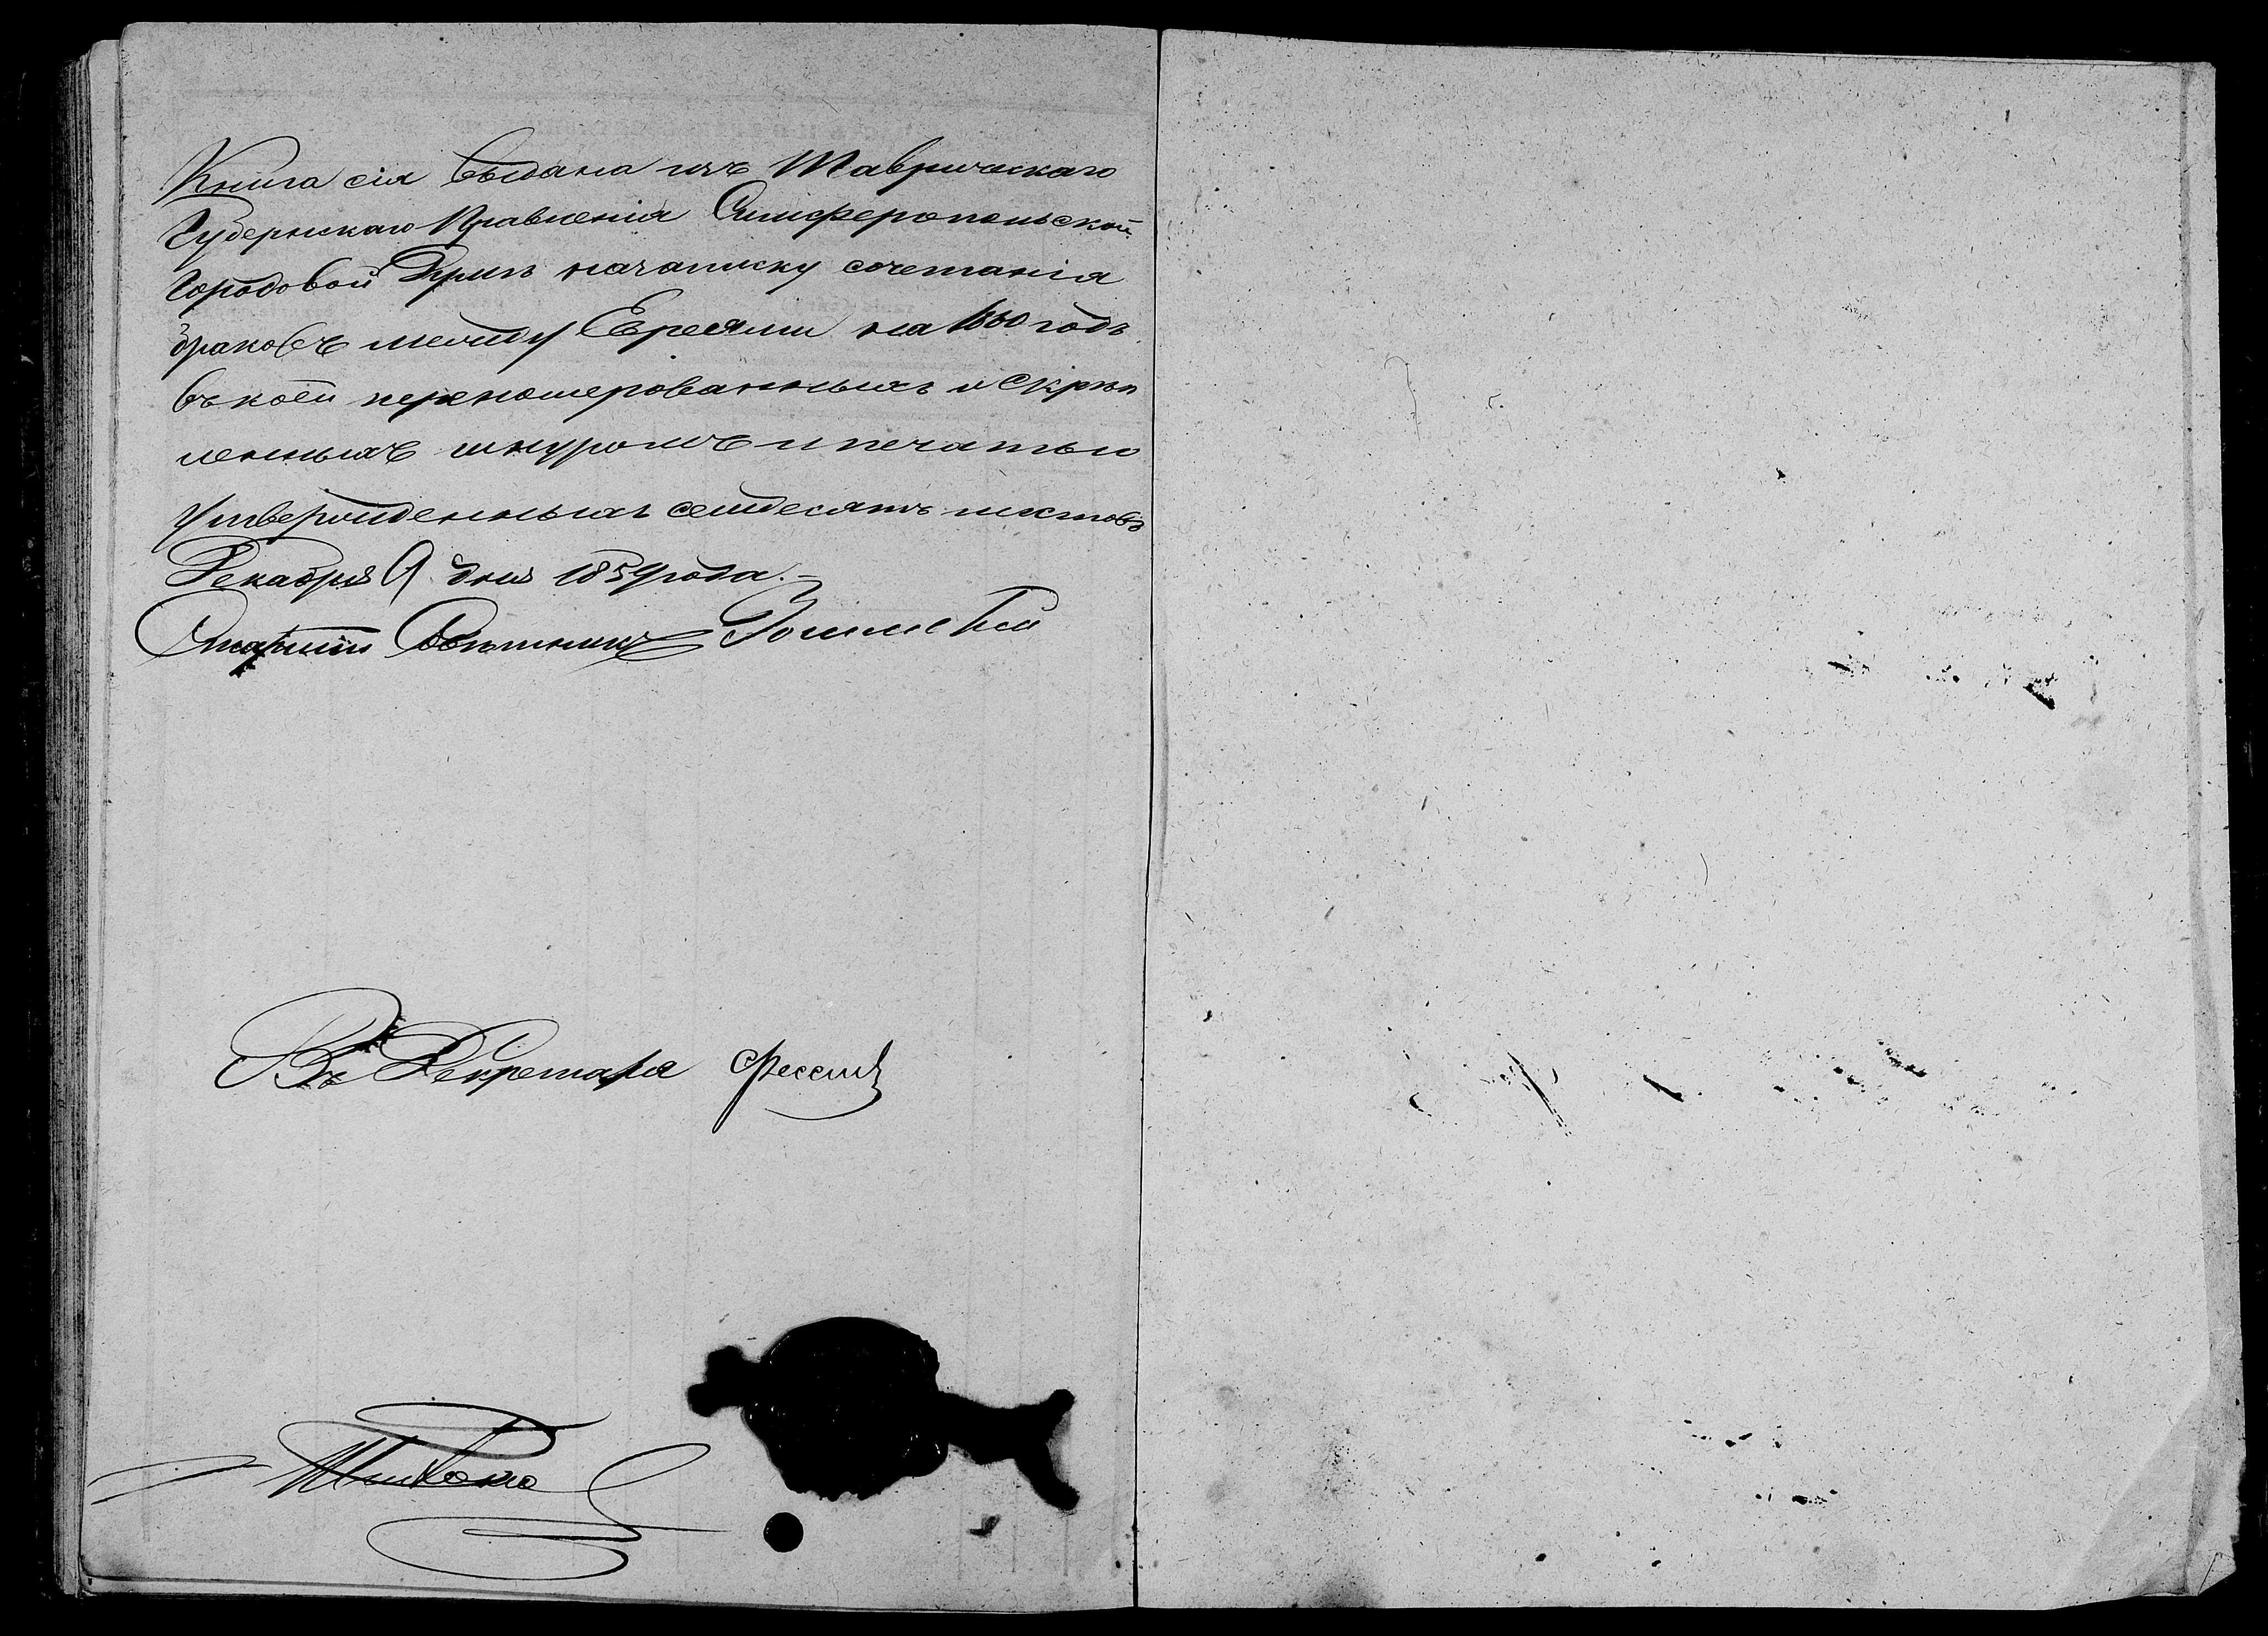 Книга сія выдана изъ Таврическаго
Губернскаго Правленія Симферопольской
Городовой Думѣ на записку сочетанія
браковъ между Евреями на 1860 годъ
въ коей переномерованныхъ и скрѣп
ленныхъ шнуромъ и печатью
утвержденныхъ семдесятъ листовъ
Декабря 9 дня 1859 года.
Старшій Совѣтникъ
Въ Секретаря